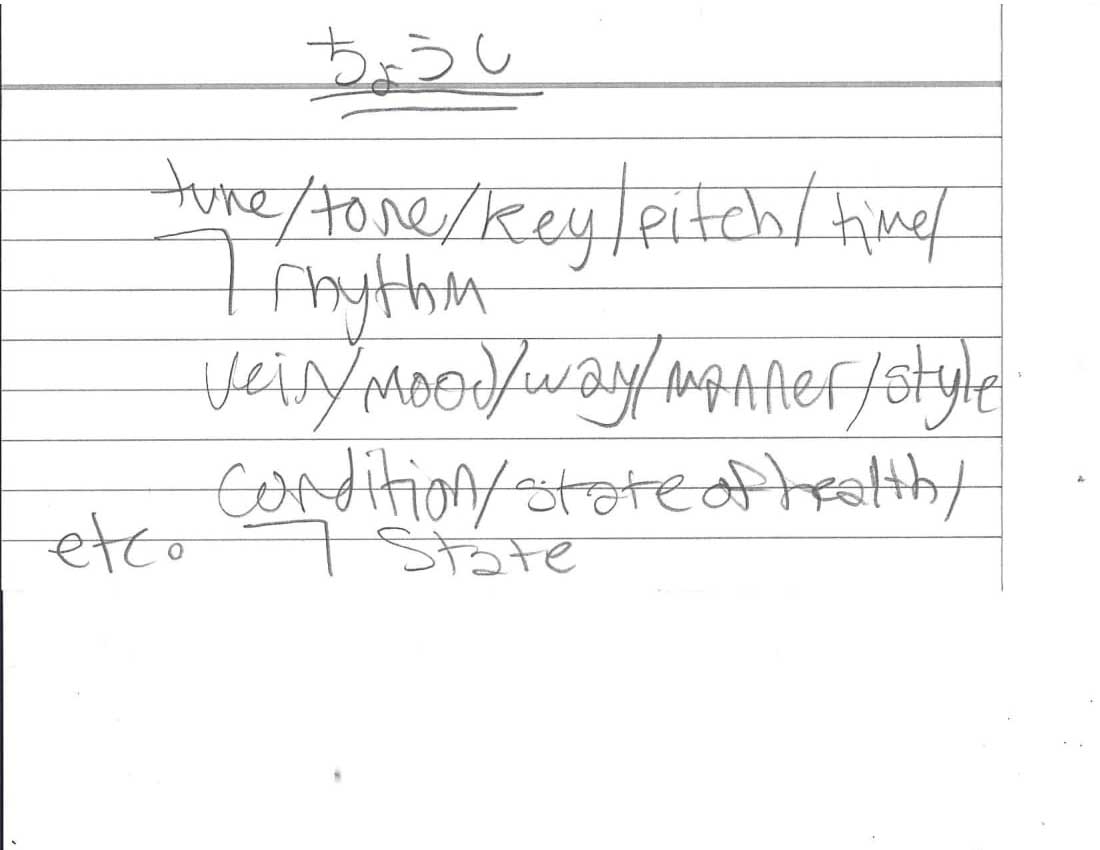 ちょうし
tune/tone/key/pitch/time/
rhythm
vein/mood/way/manner/style
condition/state of health/
etc. state